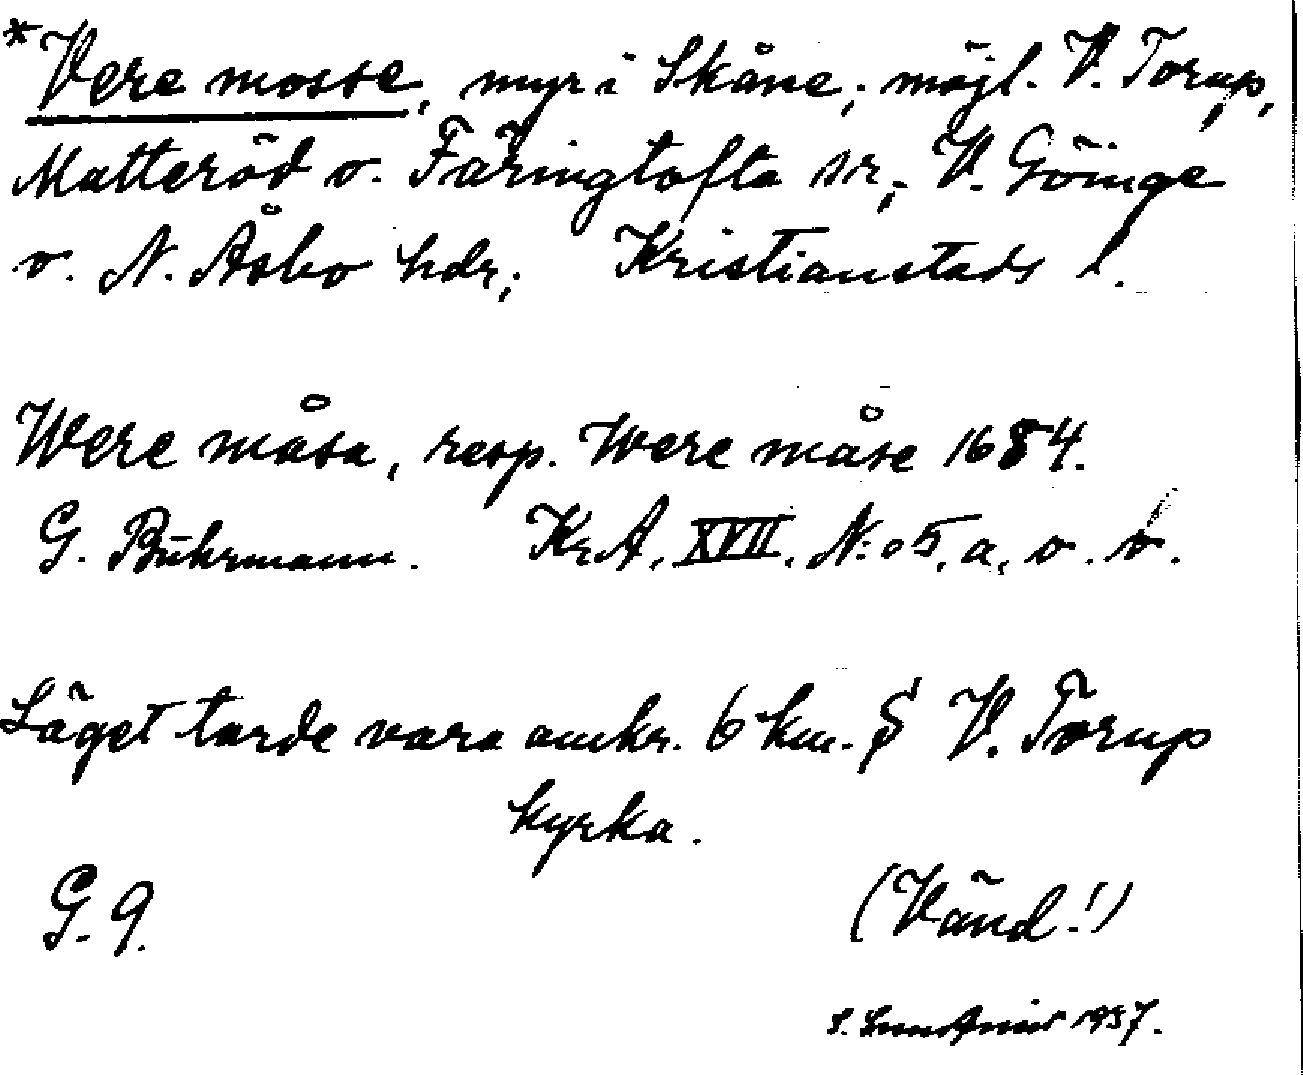 *Vere mosse, myr i Skåne; möjl. V. Torup,
Matteröd o. Färingtofta snr; V. Göinge
o. N. Åsbo hdr; Kristianstads l.
Were måsa, resp. Were måse 1684.
G. Buhrmann. Kr.A. XVII. N:o 5, a, o. b.
Läget torde vara omkr. 6 km. S V. Torup
kyrka.
G. 9.
(Vänd!)
S. 1937.